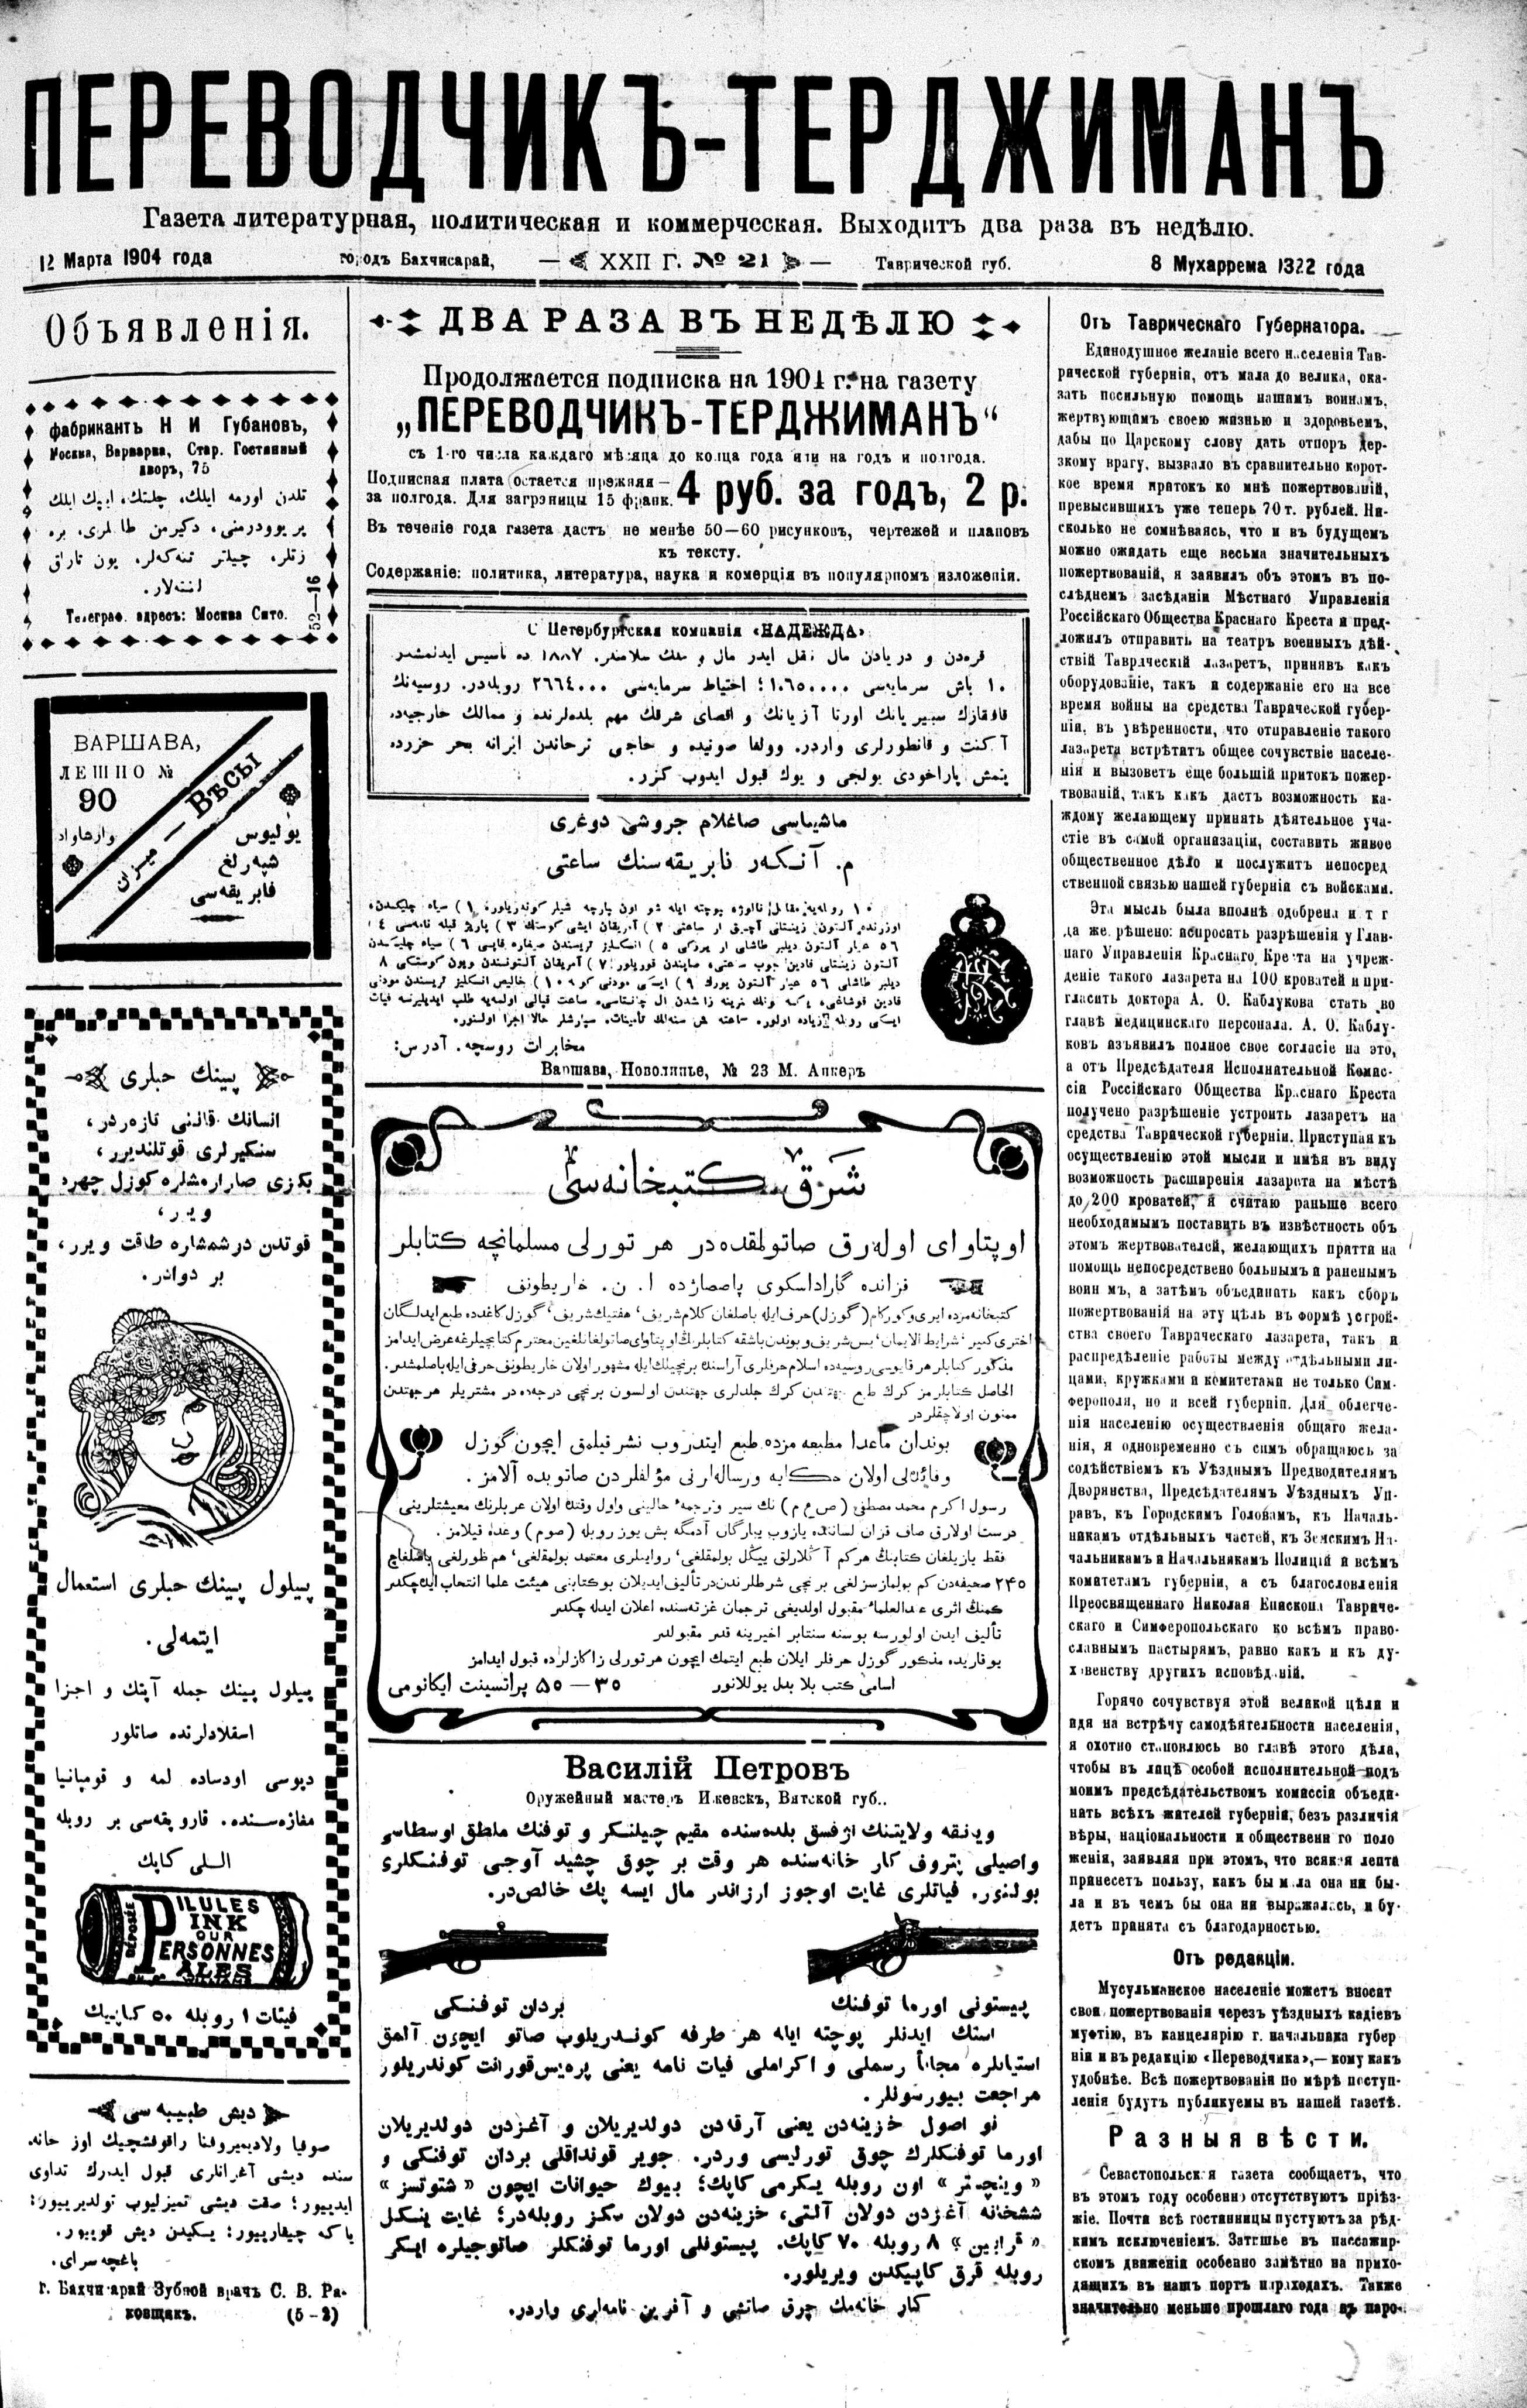 ПЕРЕВОДЧИКЪ-ТЕРДЖИМАНЪ
Газета литературная, политическая и коммерческая. Выходитъ два раза въ недѣлю.
12 Марта 1904 года городъ Бахчисарай, XXII Г. № 21 Таврической губ. 8 Мухаррема 1322 года
Объявленія.
фабрикантъ Н И Губановъ,
Москва, Варварка, Стар. Гостинный
дворъ, 75
تلدن اورمه ایلك، چلتك، ایپك ایلك
زتلر، چیلتر تنه‌كه‌لر، یون تاراق
Телеграф. адресъ: Москва Сито.
52—16
ВАРШАВА,
ЛЕШНО №
90
وارشاواد
ВѢСЫ — میزان
یولیوس
شپه‌رلغ
فابریقه‌سی
پینك حبلری
انسانك قاننی تازه‌ر‌در،
سنكیرلری قوتلندیرر،
بكزی صارارمشلره كوزل چهره
ویرر،
قوتدن درشمشاره طاقت ویرر،
بر دوادر.
پیلول پینك حبلری استعمال
ایتمه‌لی.
پیلول پینك جمله آپتك و اجزا
اسقلادلرنده صاتلور
دپوسی اودساده لمه و قومپانیا
مغازه‌سنده. قاروبقه‌سی بر روبله
اللی كاپك
PILULES
PINK
POUR
PERSONNES
PALES
DÉPOSÉE
فیئات ۱ روبله ۵۰ كاپیك
دیش طبیبه سی
صوفیا ولادیمیروفنا راقوفشچیك اوز خانه.
سنده دیشی آغرانلری قبول ایدرك تداوی
ایدییور؛ صقت دیشی تمیزلیوب تولدیرییور؛
یا كه چیقارییور؛ یسكیدن دیش قوییور.
باغچه سرای.
г. Бахчисарай Зубной врачъ С. В. Ра-
ковщикъ. (5—2)
ДВА РАЗА ВЪ НЕДѢЛЮ
Продолжается подписка на 1904 г. на газету
„ПЕРЕВОДЧИКЪ-ТЕРДЖИМАНЪ“
съ 1-го числа каждаго мѣсяца до конца года или на годъ и полгода.
Подписная плата остается прежняя—
за полгода. Для загрэницы 15 франк. 4 руб. за годъ, 2 р.
Въ теченіе года газета дастъ не менѣе 50—60 рисунковъ, чертежей и плановъ
къ тексту.
Содержаніе: политика, литература, наука и комерція въ популярномъ изложеніи.
С Петербургская компанія «НАДЕЖДА».
قره‌دن و دریادن مال نقل ایدر مال و ملك سلامتدر. ۱۸۸۷ ده تأسیس ایدنمشدر
۱۰ باش سرمایه‌سی ۱۰۶۵۰۰۰۰؛ احتیاط سرمایه‌سی ۲۶۶۴۰۰۰ روبله‌در. روسیه‌نك
قافقازك سیبریانك اورتا آزیانك و اقصای شرقك مهم بلده‌لرنده و ممالك خارجیه‌ده
آكنت و قانطورلری واردر. وولغا صوئیده و حاجی ترخاندن ایرانه بحر خزرده
ینمش پاراخودی یولجی و یوك قبول ایدوب كزر.
ماشیناسی صاغلام جروشی دوغری
م. آنكه‌ر فابریقه‌سنك ساعتی
مخابرات روسچه. آدرس:
Варшава, Новолипье, № 23 М. Анкеръ
شرق كتبخانه‌سی
اوپتاوای اوله‌رق صاتولمقده‌در هر تورلی مسلمانچه كتابلر
قزانده گاراداسكوی پاصصاژده ا. ن. خاریطونف
كتبخانه‌مزده ایری و كوركام (گوزل) حرف ایله باصلغان كلام شریف، هفتیك شریف، گوزل كاغدده طبع ایدلگان
اختری كبیر، شرایط الایمان، یس شریف و بوندن باشقه كتابلرنڭ اوپتاوای صاتولغانلغین محترم كتابچیلرغه عرض ایدامز
مذكور كتابلر هر قایوسی روسیه‌ده اسلام حرفلری آراسنده برنچیلك ایله مشهور اولان خاریطونف حرفی ایله باصلمشدر.
الحاصل كتابلرمز كرك طبع جهتندن كرك جلدلری جهتندن اولسون برنچی درجه‌ده در مشتریلر هر جهتدن
ممنون اولاچقلردر
بوندان ماعدا مطبعه مزده طبع ایتدروب نشر قیلمق ایچون گوزل
و فائده‌لی اولان حكایه و رساله‌لرنی مؤلفلردن صاتوبده آلامز.
رسول اكرم محمد مصطفی (ص ع م) نك سیر و ترجمهٔ حالینی و اول وقتده اولان عربلرنك معیشتلرینی
درست اولارق صاف قزان لساننده یازوب یبارگان آدمگه بش یوز روبله (صوم) وعده قیلامز.
یوقاریده مذكور گوزل حرفلر ایلان طبع ایتمك ایچون هر تورلی زاكازلرده قبول ایدامز
اسامی كتب بلا بدل یوللانور ۳۵—۵۵ پراتسینت ایكانومی
Василій Петровъ
Оружейный мастеръ Ижевскъ, Вятской губ..
ویتقه ولایتنك اژفسق بلده‌سنده مقیم چیلنكر و توفنك ملطق اوسطاسی
واصیلی پتروف كار خانه‌سنده هر وقت بر چوق چشید آوجی توفنكلری
بولنور. فیاتلری غایت اوجوز ارزاندر مال ایسه پك خالص‌در.
پیستونی اورما توفنك بردان توفنكی
استك ایدنلر پوچته ایله هر طرفه كوندریلوب صاتو ایچون آلمق
استیانلره مجاناً رسملی و اكراملی فیات نامه یعنی پره‌یس‌قورانت كوندریلور
مراجعت بیورسونلر.
نو اصول خزینه‌دن یعنی آرقه‌دن دولدیریلان و آغزدن دولدیریلان
اورما توفنكلرك چوق تورلیسی وردر. جویر قونداقلی بردان توفنكی و
«وینچستر» اون روبله یكرمی كاپك؛ بیوك حیوانات ایچون «شتوتسز»
ششخانه آغزدن دولان آلتی، خزینه‌دن دولان سكز روبله‌در؛ غایت یینكل
«قرابین» ۸ روبله ۷۰ كاپك. پیستونلی اورما توفنكلر صاتوجیلره ایكر
روبله قرق كاپیكدن ویریلور.
كار خانه‌مك چوق صانشی و آفرین نامه‌لری واردر.
Отъ Таврическаго Губернатора.
Единодушное желаніе всего населенія Тав-
рической губерніи, отъ мала до велика, ока-
зать посильную помощь нашамъ воинамъ,
жертвующимъ своею жизнью и здоровьемъ,
дабы по Царскому слову дать отпоръ дер-
зкому врагу, вызвало въ сравнительно корот-
кое время притокъ ко мнѣ пожертвованій,
превысившихъ уже теперь 70 т. рублей. Ни-
сколько не сомнѣваясь, что и въ будущемъ
можно ожидать еще весьма значительныхъ
пожертвованій, я заявилъ объ этомъ въ по-
слѣднемъ засѣданіи Мѣстнаго Управленія
Россійскаго Общества Краснаго Креста и пред-
ложилъ отправить на театръ военныхъ дѣй-
ствій Таврическій лазаретъ, принявъ какъ
оборудованіе, такъ и содержаніе его на все
время войны на средства Таврической губер-
ніи, въ увѣренности, что отправленіе такого
лазарета встрѣтитъ общее сочувствіе населе-
нія и вызоветъ еще большій притокъ пожер-
твованій, такъ какъ дастъ возможность ка-
ждому желающему принять дѣятельное уча-
стіе въ самой организаціи, составитъ живое
общественное дѣло и послужитъ непосред
ственной связью нашей губерніи съ войсками.
Эта мысль была вполнѣ одобрена и т г
да же рѣшено: испросить разрѣшенія у Глав-
наго Управленія Краснаго Креста на учреж-
деніе такого лазарета на 100 кроватей и при-
гласить доктора А. О. Каблукова стать во
главѣ медицинскаго персонала. А. О. Каблу-
ковъ изъявилъ полное свое согласіе на это,
а отъ Предсѣдателя Исполнительной Комис-
сіи Россійскаго Общества Краснаго Креста
получено разрѣшеніе устроить лазаретъ на
средства Таврической губерніи. Приступая къ
осуществленію этой мысли и имѣя въ виду
возможность расширенія лазарета на мѣстѣ
до 200 кроватей, я считаю раньше всего
необходимымъ поставить въ извѣстность объ
этомъ жертвователей, желающихъ притти на
помощь непосредствено больнымъ и раненымъ
воинамъ, а затѣмъ объединить какъ сборъ
пожертвованій на эту цѣль въ формѣ устрой-
ства своего Таврическаго лазарета, такъ и
распредѣленіе работы между отдѣльными ли-
цами, кружками и комитетами не только Сим-
ферополя, но и всей губерніи. Для облегче-
нія населенію осуществленія общаго жела-
нія, я одновременно съ симъ обращаюсь за
содѣйствіемъ къ Уѣзднымъ Предводителямъ
Дворянства, Предсѣдателямъ Уѣздныхъ Уп-
равъ, къ Городскимъ Головамъ, къ Началь-
никамъ отдѣльныхъ частей, къ Земскимъ На-
чальникамъ и Начальникамъ Полицій и всѣмъ
комитетамъ губерніи, а съ благословленія
Преосвященнаго Николая Епископа Тавриче-
скаго и Симферопольскаго ко всѣмъ право-
славнымъ пастырямъ, равно какъ и къ ду-
ховенству другихъ исповѣданій.
Горячо сочувствуя этой великой цѣли и
идя на встрѣчу самодѣятельности населенія,
я охотно становлюсь во главѣ этого дѣла,
чтобы въ лицѣ особой исполнительной подъ
моимъ предсѣдательствомъ комиссіи объеди-
нить всѣхъ жителей губерніи, безъ различія
вѣры, національности и общественн го поло
женія, заявляя при этомъ, что всякая лепта
принесетъ пользу, какъ бы мала она ни бы-
ла и въ чемъ бы она ни выражалась, и бу-
детъ принята съ благодарностью.
Отъ редакціи.
Мусульманское населеніе можетъ вносит
свои пожертвованія черезъ уѣздныхъ кадіевъ
муфтію, въ канцелярію г. начальника губер
ніи и въ редакцію «Переводчика»,— кому какъ
удобнѣе. Всѣ пожертвованія по мѣрѣ поступ-
ленія будутъ публикуемы въ нашей газетѣ.
Разныя вѣсти.
Севастопольская газета сообщаетъ, что
въ этомъ году особенно отсутствуютъ пріѣз-
жіе. Почти всѣ гостинницы пустуютъ за рѣд-
кимъ исключеніемъ. Затишье въ пассажир-
скомъ движеніи особенно замѣтно на прихо-
дящихъ въ нашъ портъ пароходахъ. Также
значительно меньше прошлаго года въ паро-